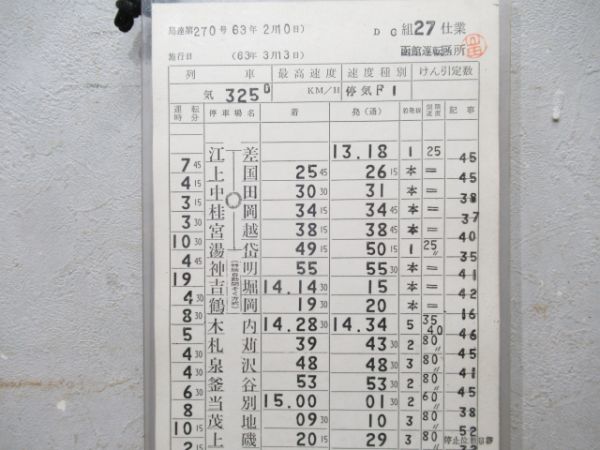 局達第270号 63年 2月 0日)
DC 組27仕業
施行日 (63年 3月13日)
函館運転所
列 車 最高速度 速度種別 けん引定数
気 325D KM/H 停気F1
運転時分 停車場名 着 発(通) 着発線 制限速度 記事
江差 13.18 1 25 45
7 45 上国 25 45 26 15 本 = 45
4 15 中田 30 30 31 本 = 38
3 15 桂岡 34 15 34 45 本 = 37
3 30 宮越 38 15 38 45 本 = 40
10 30 湯岱 49 15 50 15 1 25 〃 35
4 45 神明 55 55 30 本 = 41
19 吉堀 14.14 30 15 本 = 42
4 30 鶴岡 19 30 20 本 = 16
8 30 木内 14.28 30 14.34 5 35 40 46
5 札苅 39 43 30 2 80 〃 45
4 30 泉沢 48 48 30 3 80 〃 44
4 30 釜谷 53 53 30 2 80 〃 45
6 30 当別 15.00 01 30 2 60 〃 38
8 茂地 09 30 10 3 80 〃 52
10 15 上磯 20 15 29 3 80 〃